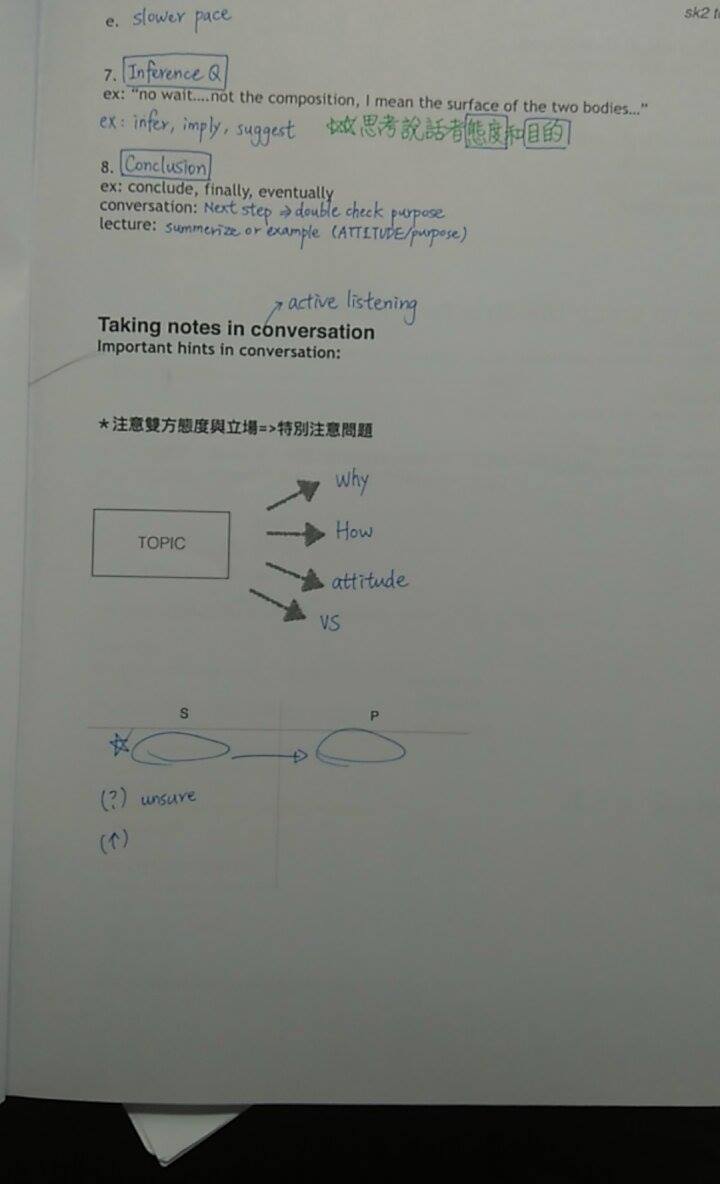 e. slower pace
sk2 t
7. Inference Q
ex: "no wait....not the composition, I mean the surface of the two bodies..."
ex: infer, imply, suggest ☆☆思考說話者態度和目的
8. Conclusion
ex: conclude, finally, eventually
conversation: Next step ⇒ double check purpose
lecture: summerize or example (ATTITUDE/purpose)
↗ active listening
Taking notes in conversation
Important hints in conversation:
★注意雙方態度與立場=>特別注意問題
Why
TOPIC
How
attitude
VS
S P
☆
(?) unsure
(↑)